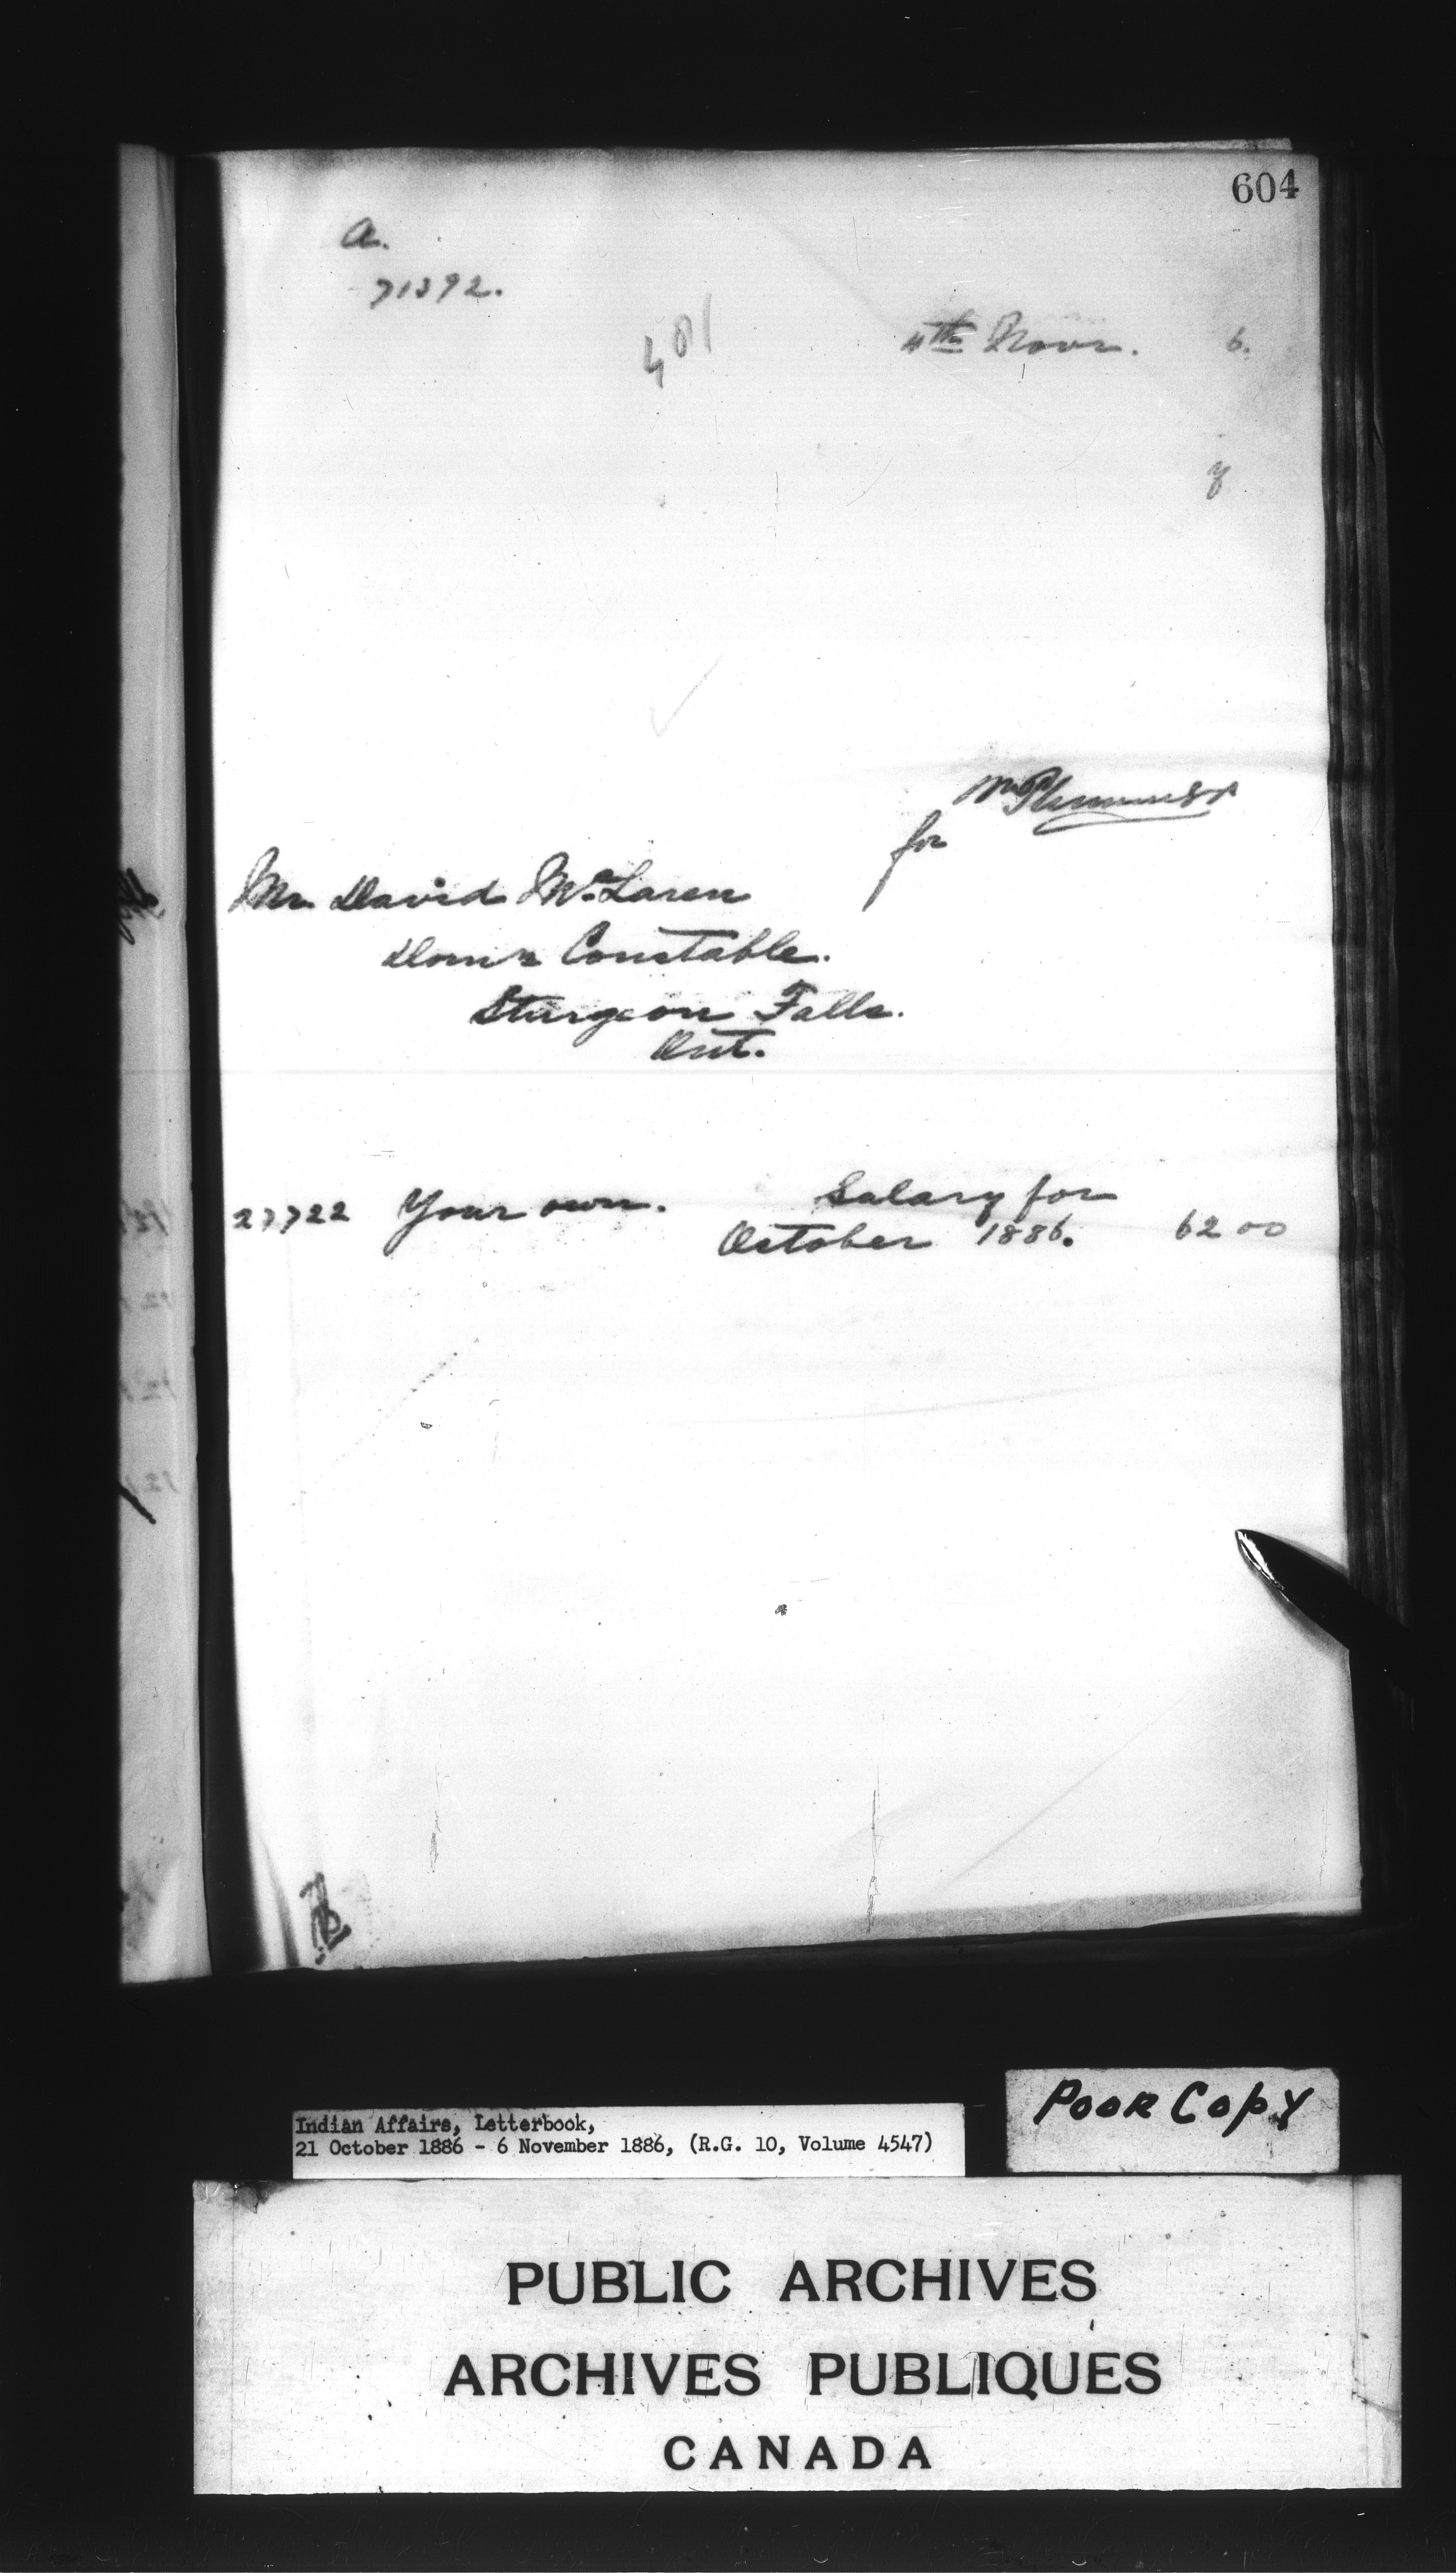 604
a.
71392.
401
4th Novr. 6.
y
Wm Plummer
for
Mr David McLaren
Domn Constable.
Sturgeon Falls.
Ont.
27722 Your own. Salary for
October 1886. 62 00
Poor Copy
Indian Affairs, Letterbook,
21 October 1886 - 6 November 1886, (R.G. 10, Volume 4547)
PUBLIC ARCHIVES
ARCHIVES PUBLIQUES
CANADA